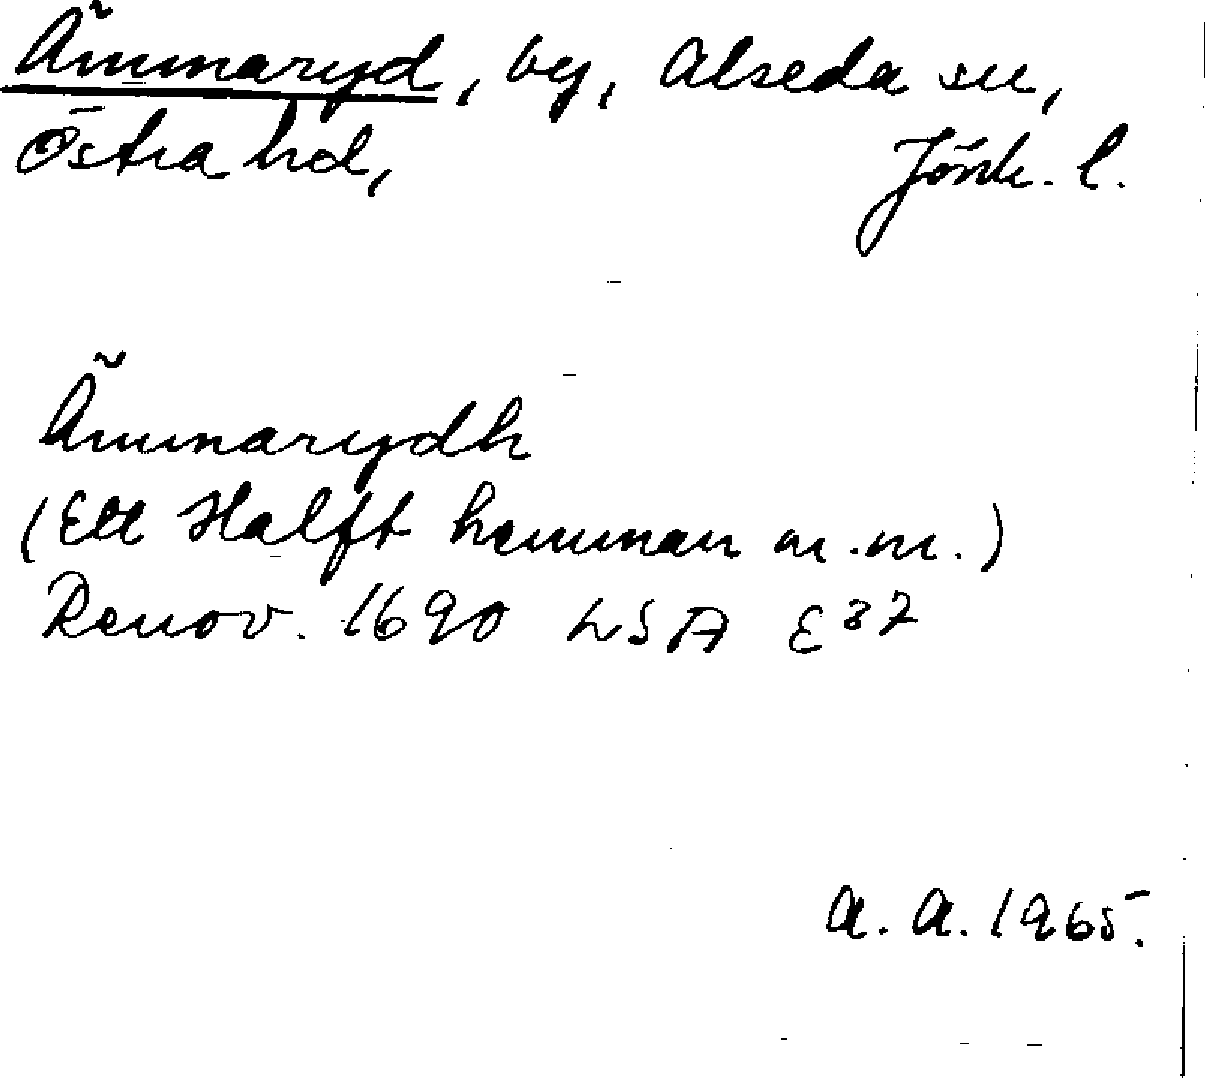 Ämmaryd, by, Alseda sn,
Östra hd, Jönk. l.
Ämmarydh
(Ett Halft hemman m.m.)
Renov. 1690 LSA E 37
A. A. 1965.